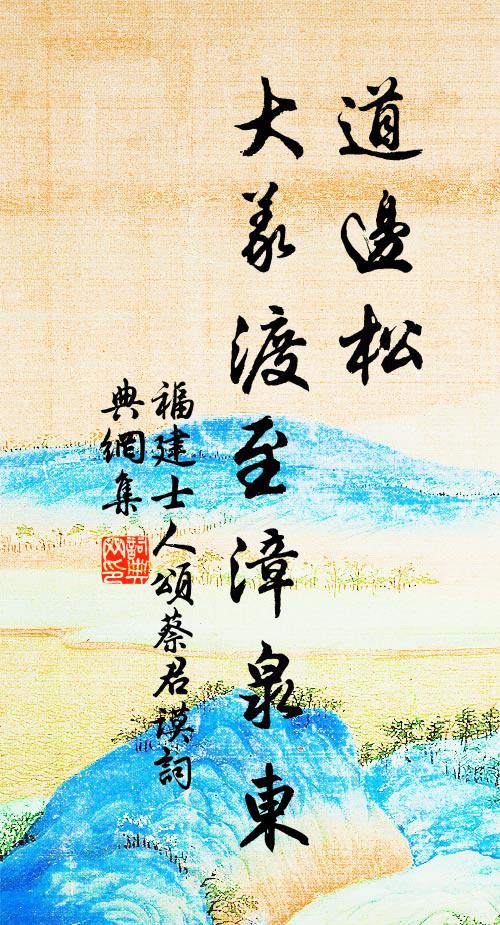 道邊松
大義渡至漳泉東
福建士人頌蔡君謨詞
典網集
詞典網印